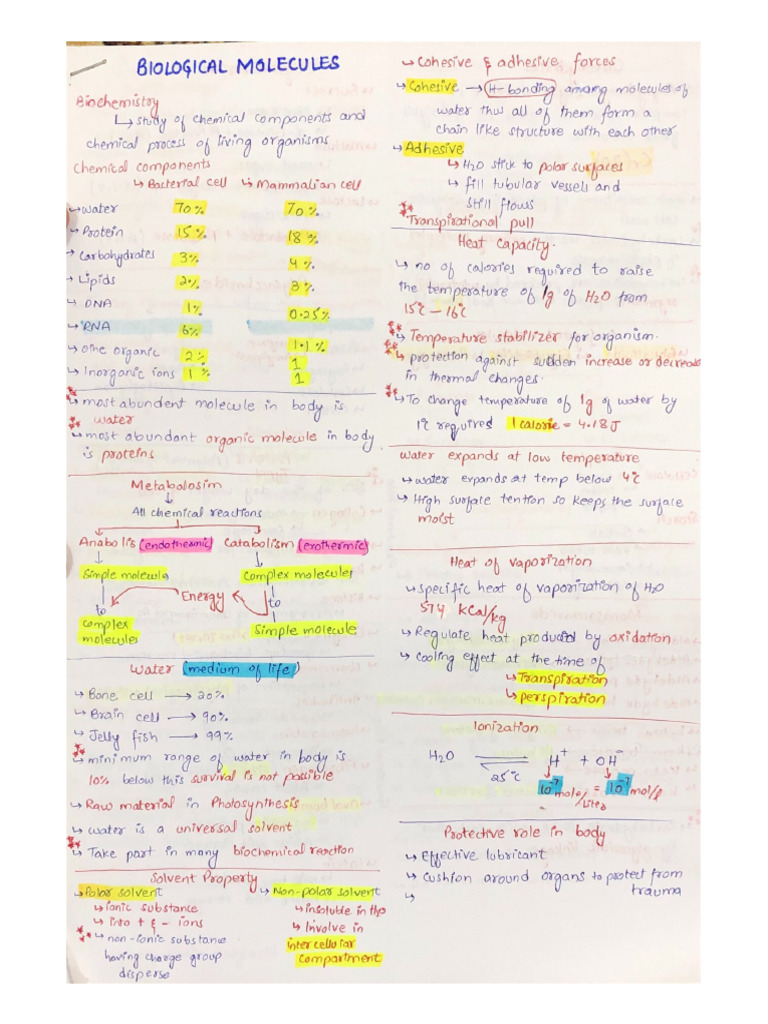 BIOLOGICAL MOLECULES
Biochemistry
↳ study of chemical components and
chemical process of living organisms
Chemical components
↳ Bacterial cell ↳ Mammalian cell
↳ water 70% 70%
↳ Protein 15% 18%
↳ Carbohydrates 3% 4%
↳ Lipids 2% 3%
↳ DNA 1% 0.25%
↳ RNA 6% 1.1%
↳ other organic 2% 1
↳ Inorganic ions 1% 1
↳ most abundent molecule in body is
water
↳ most abundant organic molecule in body
is proteins
Metabolosim
↓
All chemical reactions
Anabolis (endothermic) Catabolism (exothermic)
Simple molecule Complex molecules
Energy
to to
Complex
molecules Simple molecule
Water (medium of life)
↳ Bone cell → 20%
↳ Brain cell → 90%
↳ Jelly fish → 99%
↳ minimum range of water in body is
10% below this survival is not possible
↳ Raw material in Photosynthesis
↳ water is a universal solvent
↳ Take part in many biochemical reaction
Solvent Property
↳ Polar solvent ↳ Non-polar solvent
↳ ionic substance ↳ insoluble in H2O
↳ into + & - ions ↳ Involve in
↳ non-ionic substance intercellular
having charge group compartment
disperse
↳ Cohesive & adhesive forces
↳ Cohesive → H-bonding among molecules of
water thus all of them form a
chain like structure with each other
↳ Adhesive
↳ H2O stick to polar surfaces
↳ fill tubular vessels and
still flows
Transpirational pull
Heat Capacity.
↳ no of calories required to raise
the temperature of 1g of H2O from
15°C - 16°C
↳ Temperature stabilizer for organism.
↳ protection against sudden increase or decrease
in thermal changes.
↳ To change temperature of 1g of water by
1°C required 1 calorie = 4.18J
water expands at low temperature
↳ water expands at temp below 4°C
↳ High surface tention so keeps the surface
moist
Heat of vaporization
↳ specific heat of vaporization of H2O
574 kcal/kg
↳ Regulate heat produced by oxidation
↳ cooling effect at the time of
↳ Transpiration
↳ perspiration
Ionization
H2O ⇌ H+ + OH-
25°C
10-7 mole/Liter = 10-7 mol/l
Protective role in body
↳ Effective lubricant
↳ Cushion around organs to protect from
trauma
↳